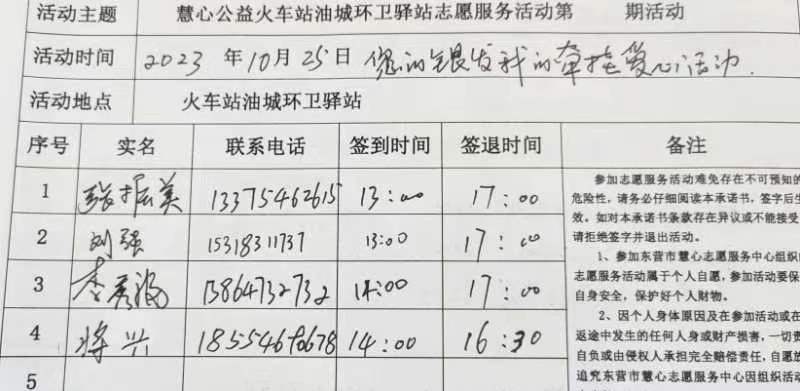 活动主题 慧心公益火车站油城环卫驿站志愿服务活动第 期活动
活动时间 2023 年 10 月 25 日 您的银发我的牵挂爱心活动.
活动地点 火车站油城环卫驿站
序号 实名 联系电话 签到时间 签退时间 备注
1 张振美 13375462615 13:00 17:00
2 刘强 15318311737 13:00 17:00
3 李秀海 13864732732 14:00 17:00
4 蒋兴 18554690678 14:00 16:30
5
参加志愿服务活动难免存在不可预知的
危险性,请务必仔细阅读本承诺书,签字后生
效。如对本承诺书条款存在异议或不能接受
请拒绝签字并退出活动。
1、参加东营市慧心志愿服务中心组织的
志愿服务活动属于个人自愿,参加活动要保
自身安全,保护好个人财物。
2、因个人身体原因及在参加活动或在
返途中发生的任何人身或财产损害,一切责
自负或由侵权人承担完全赔偿责任,自愿放
追究东营市慧心志愿服务中心因组织活动